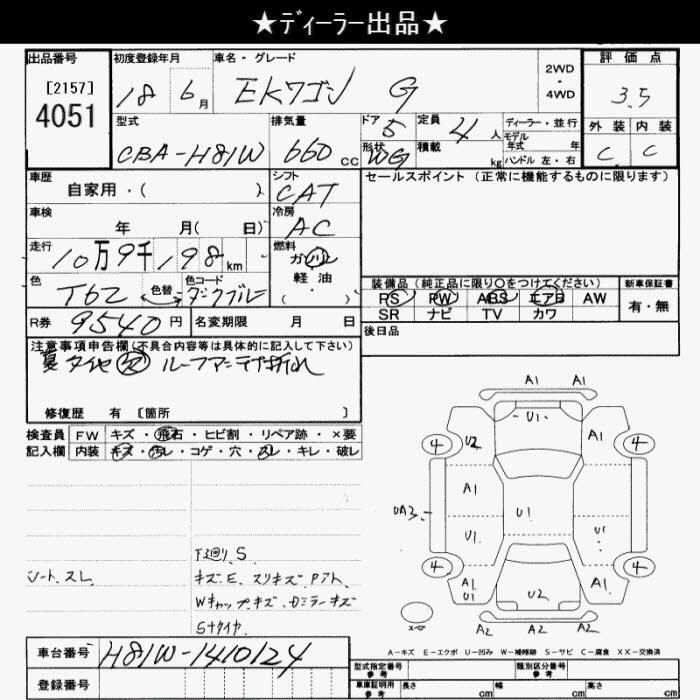 ★ディーラー出品★
出品番号 初度登録年月 車名・グレード 2WD・4WD 評価点
[2157]
4051
18 6月 EKワゴン G 3.5
型式 排気量 ドア 5 定員 4人 ディーラー・並行 外装 内装
モデル年式 年
CBA-H81W 660cc 形状 WG 積載 kg ハンドル 左・右 C C
車歴 シフト セールスポイント(正常に機能するものに限ります)
自家用・( ) CAT
車検 冷房
年 月( 日) AC
走行 燃料
10万9千198km ガソリン
軽油
( ・ )
色 色替 色コード 装備品(純正品に限り○をつけてください) 新車保証書
T62 ダークブルー PS PW ABS エアB AW 有・無
SR ナビ TV カワ
R券 9540円 名変期限 月 日 後日品
注意事項申告欄(不具合内容等は具体的に記入して下さい)
夏タイヤ 欠 ルーフアンテナ折れ
修復歴 有 [箇所 ]
検査員 FW キズ・飛石・ヒビ割・リペア跡・×要
記入欄 内装 キズ・汚レ・コゲ・穴・スレ・キレ・破レ
A1 A1
U1
4 U2 A1 4
A1
UA3 U1
U1
下廻り、S
シート、スレ キズE、スリキズ、Pアト、
4 A1 A1 4
U1 U2
Wキャップキズ、Dミラーキズ
Sナタイヤ
スペア A2 A2
A-キズ E-エクボ U-凹み W-補修跡 S-サビ C-腐食 XX-交換済
車台番号 H81W-1410124
型式指定番号 参考 類別区分番号 参考
登録番号 車庫証明用 参考 長さ cm 幅 cm 高さ cm